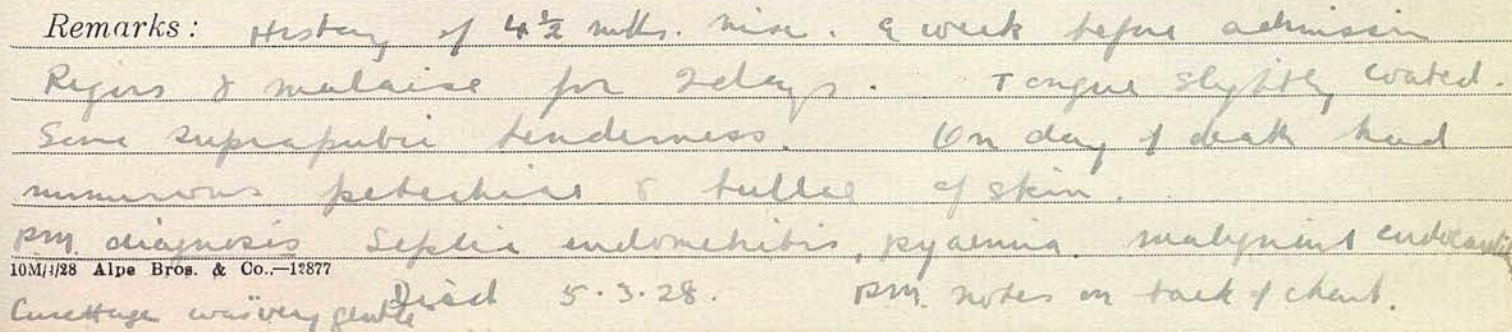 Remarks: History of 4½ mths. misc. a week before admission
Rigors & malaise for 2 days. Tongue slightly coated.
Some suprapubic tenderness. On day of death had
numerous petechiae & bullae of skin.
P.M. diagnosis Septic endometritis, pyaemia, malignant endocarditis
10M/4/28 Alpe Bros. & Co.—12877
Curettage was very gentle Died 5.3.28. P.M. notes on back of chart.